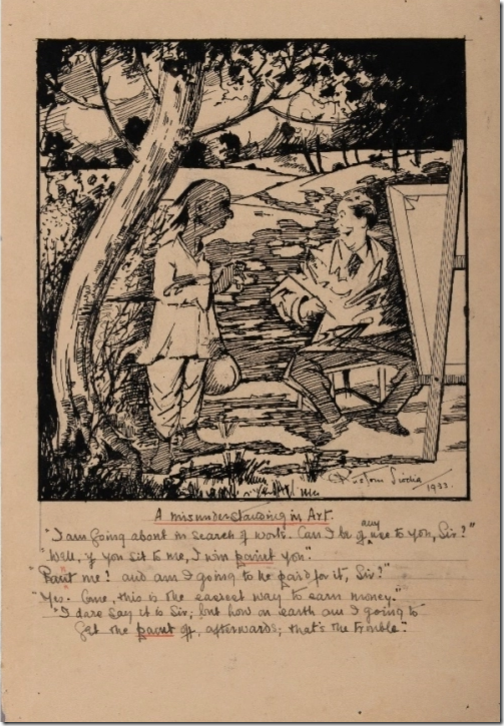 Rustom Siodia
1933.
A misunderstanding in Art.
"I am going about in search of work. Can I be of any use to you, Sir?"
"Well, if you sit to me, I win paint you."
"Paint me! and am I going to be paid for it, Sir?"
"Yes. Come, this is the easiest way to earn money."
"I dare say it is Sir; but how on earth am I going to
get the paint off, afterwards; that's the trouble".